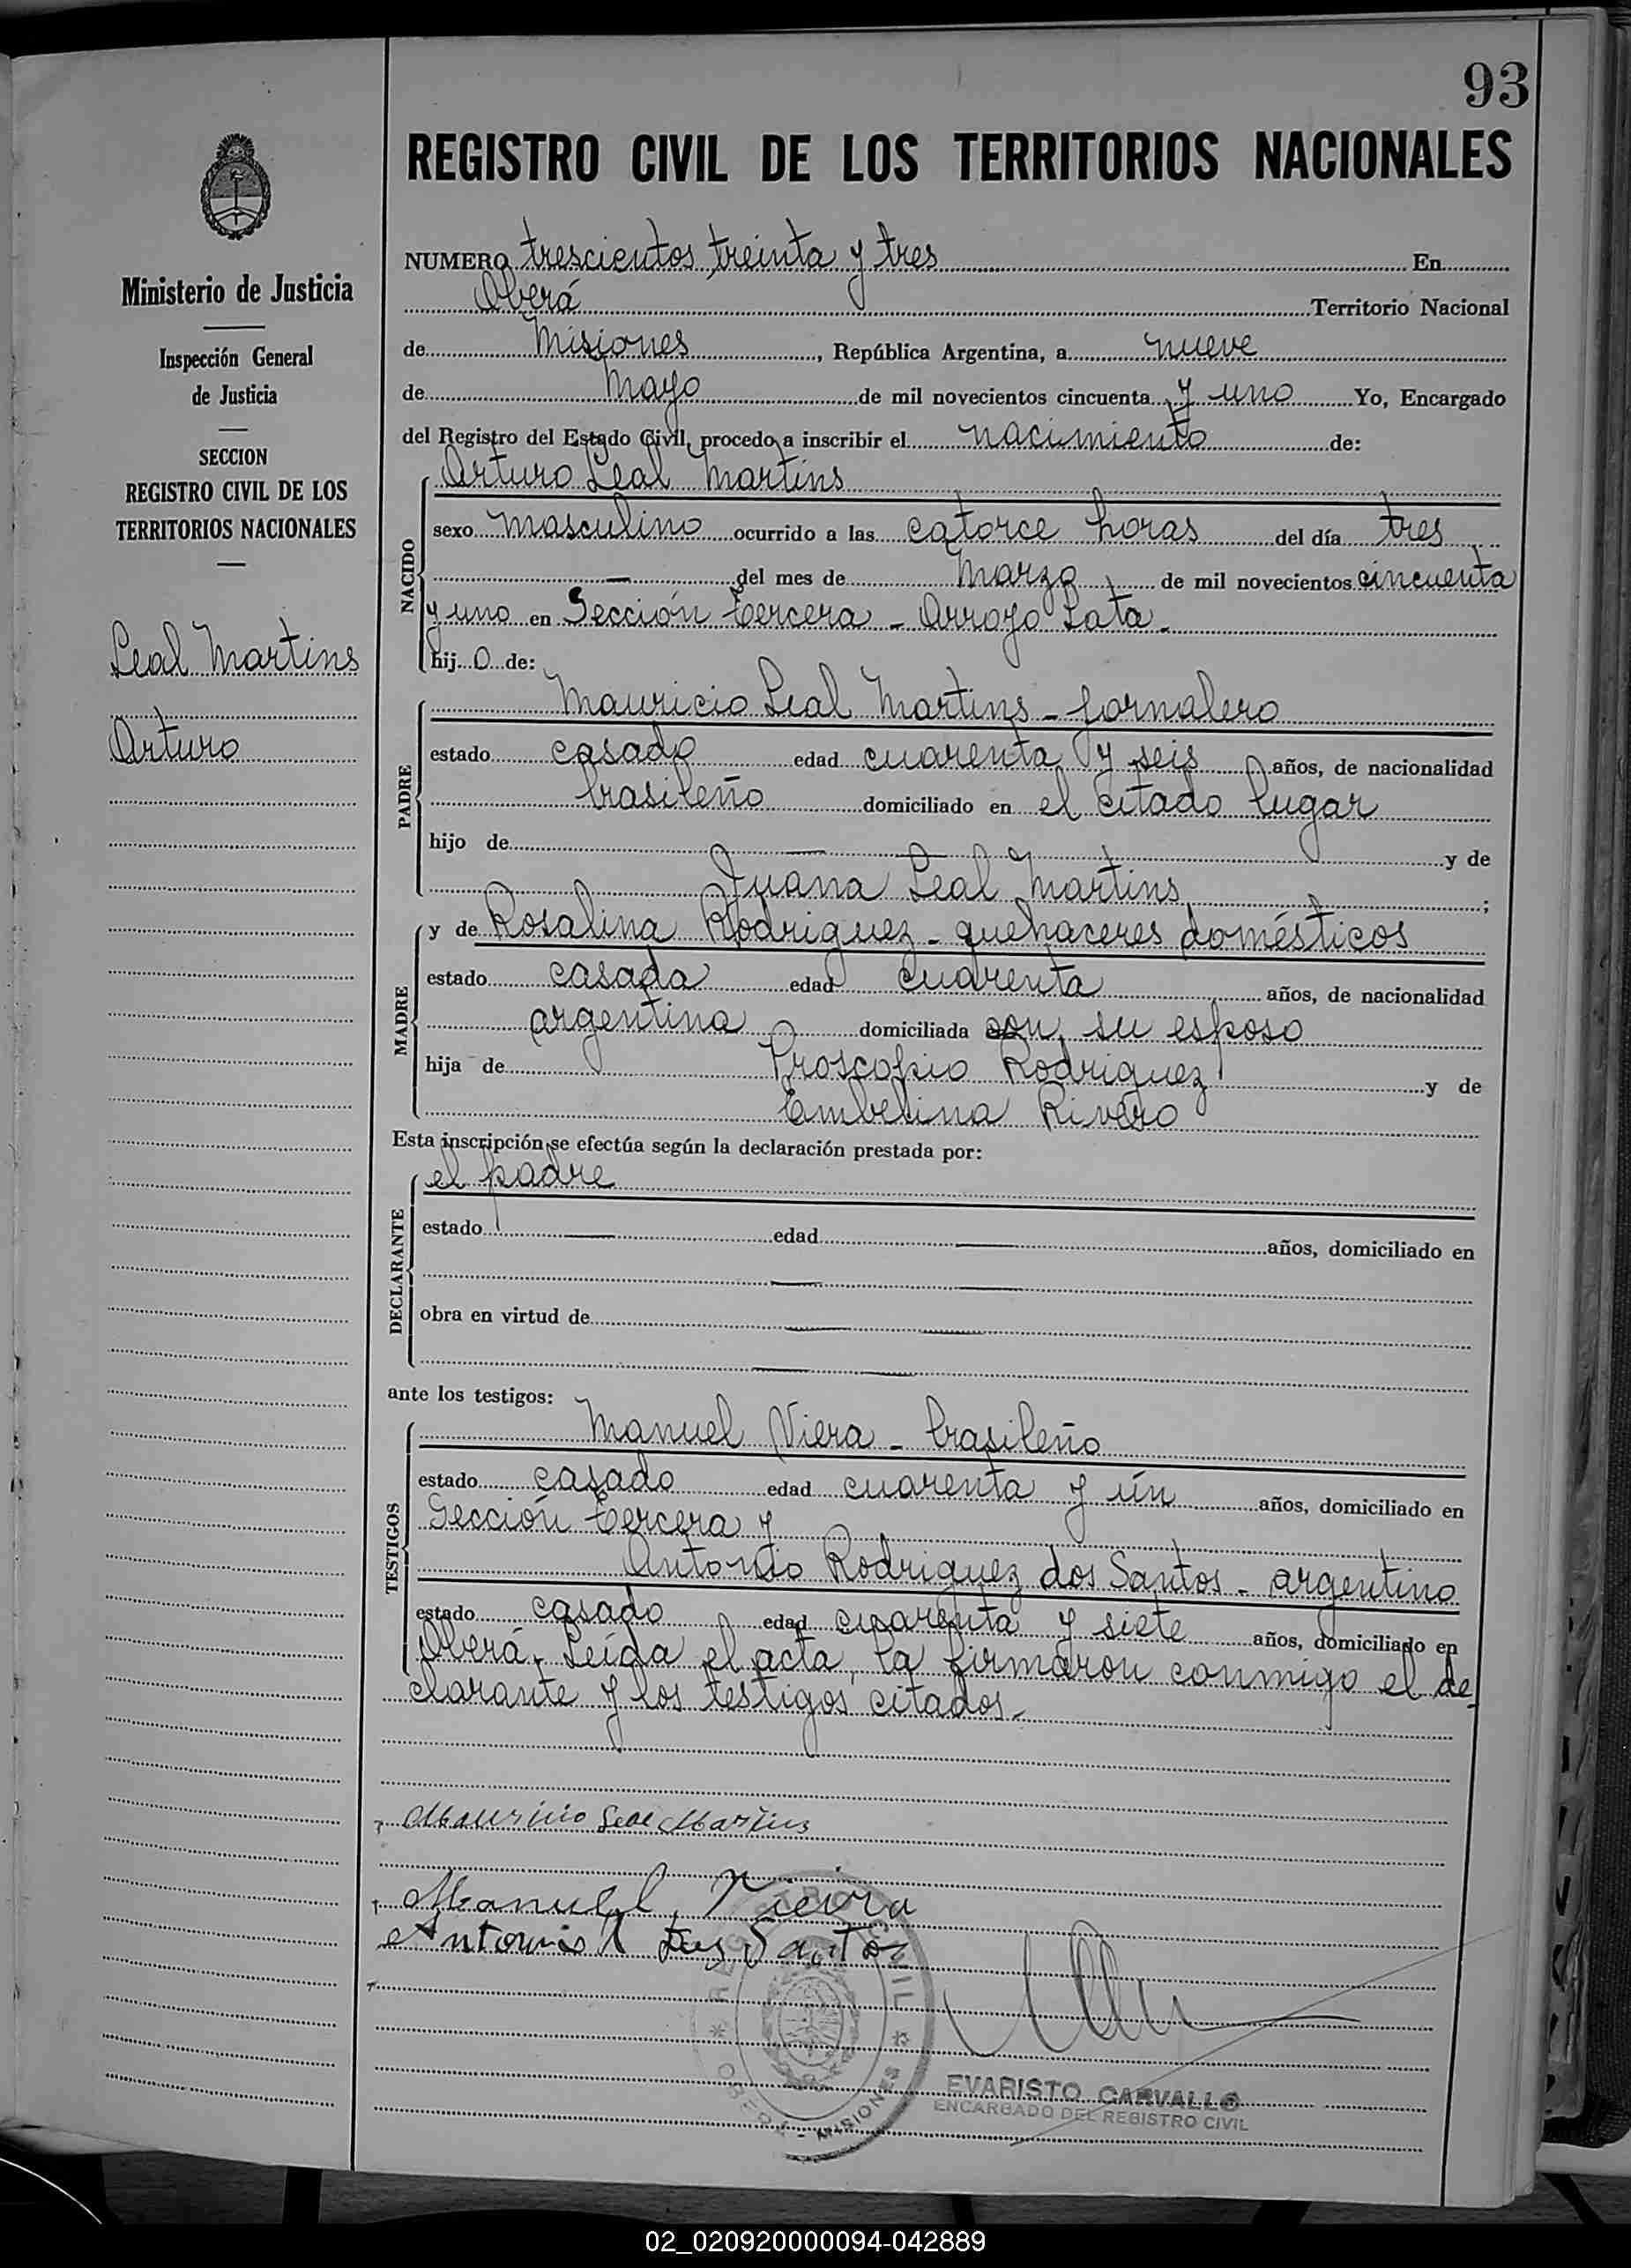 93
REGISTRO CIVIL DE LOS TERRITORIOS NACIONALES
Ministerio de Justicia
Inspección General
de Justicia
SECCION
REGISTRO CIVIL DE LOS
TERRITORIOS NACIONALES
Leal Martins
Arturo
NUMERO trescientos treinta y tres En
Oberá Territorio Nacional
de Misiones, República Argentina, a nueve
de Mayo de mil novecientos cincuenta y uno Yo, Encargado
del Registro del Estado Civil, procedo a inscribir el nacimiento de:
NACIDO
Arturo Leal Martins
sexo masculino ocurrido a las catorce horas del día tres
— del mes de Marzo de mil novecientos cincuenta
y uno en Sección tercera - Arroyo Lata -
hij o de:
PADRE
Mauricio Leal Martins - jornalero
estado casado edad cuarenta y seis años, de nacionalidad
brasileño domiciliado en el citado lugar
hijo de — — y de
Juana Leal Martins ;
MADRE
y de Rosalina Rodriguez - quehaceres domésticos
estado casada edad cuarenta años, de nacionalidad
argentina domiciliada con su esposo
hija de Proscopio Rodriguez y de
Embelina Rivero
Esta inscripción se efectúa según la declaración prestada por:
DECLARANTE
el padre
estado — edad — años, domiciliado en
— —
obra en virtud de — —
— —
ante los testigos:
TESTIGOS
Manuel Viera - brasileño
estado casado edad cuarenta y ún años, domiciliado en
Sección tercera y
Antonio Rodriguez dos Santos - argentino
estado casado edad cuarenta y siete años, domiciliado en
Oberá. Leída el acta, la firmaron conmigo el de-
clarante y los testigos citados.-
Mauricio Leal Martins
Manuel Vieira
Antonio R dos Santos
REGISTRO CIVIL
OBERÁ - MISIONES
EVARISTO CARVALLO
ENCARGADO DEL REGISTRO CIVIL
02_020920000094-042889